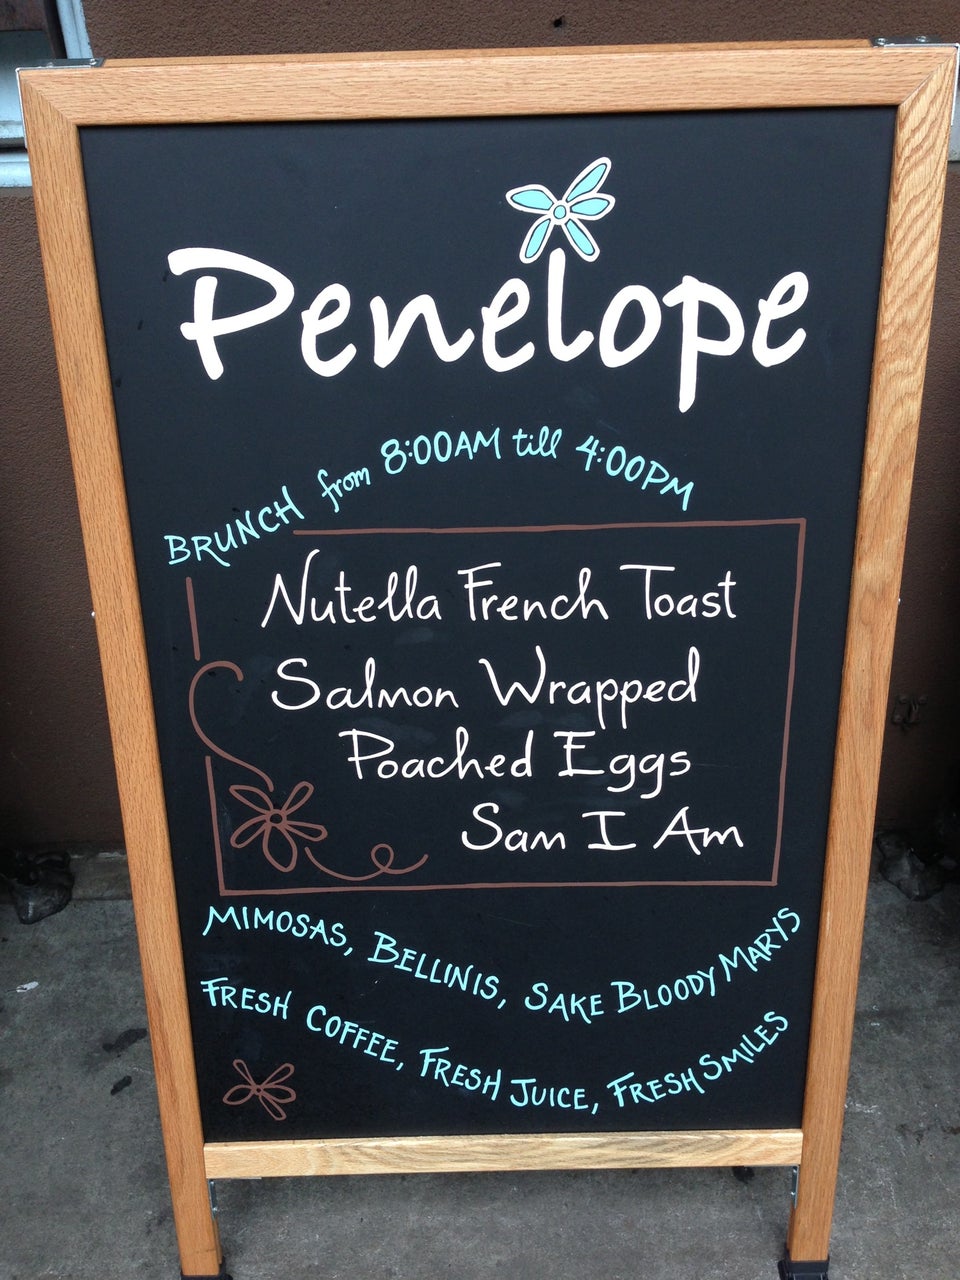 Penelope
BRUNCH from 8:00AM till 4:00PM
Nutella French Toast
Salmon Wrapped
Poached Eggs
Sam I Am
MIMOSAS, BELLINIS, SAKE BLOODY MARYS
FRESH COFFEE, FRESH JUICE, FRESH SMILES